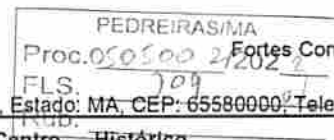 PEDREIRAS/MA
Proc. 050500 2/2022
Fortes Con
FLS. 109
Estado: MA, CEP: 65580000, Tele
Rub.
Centro Histórico